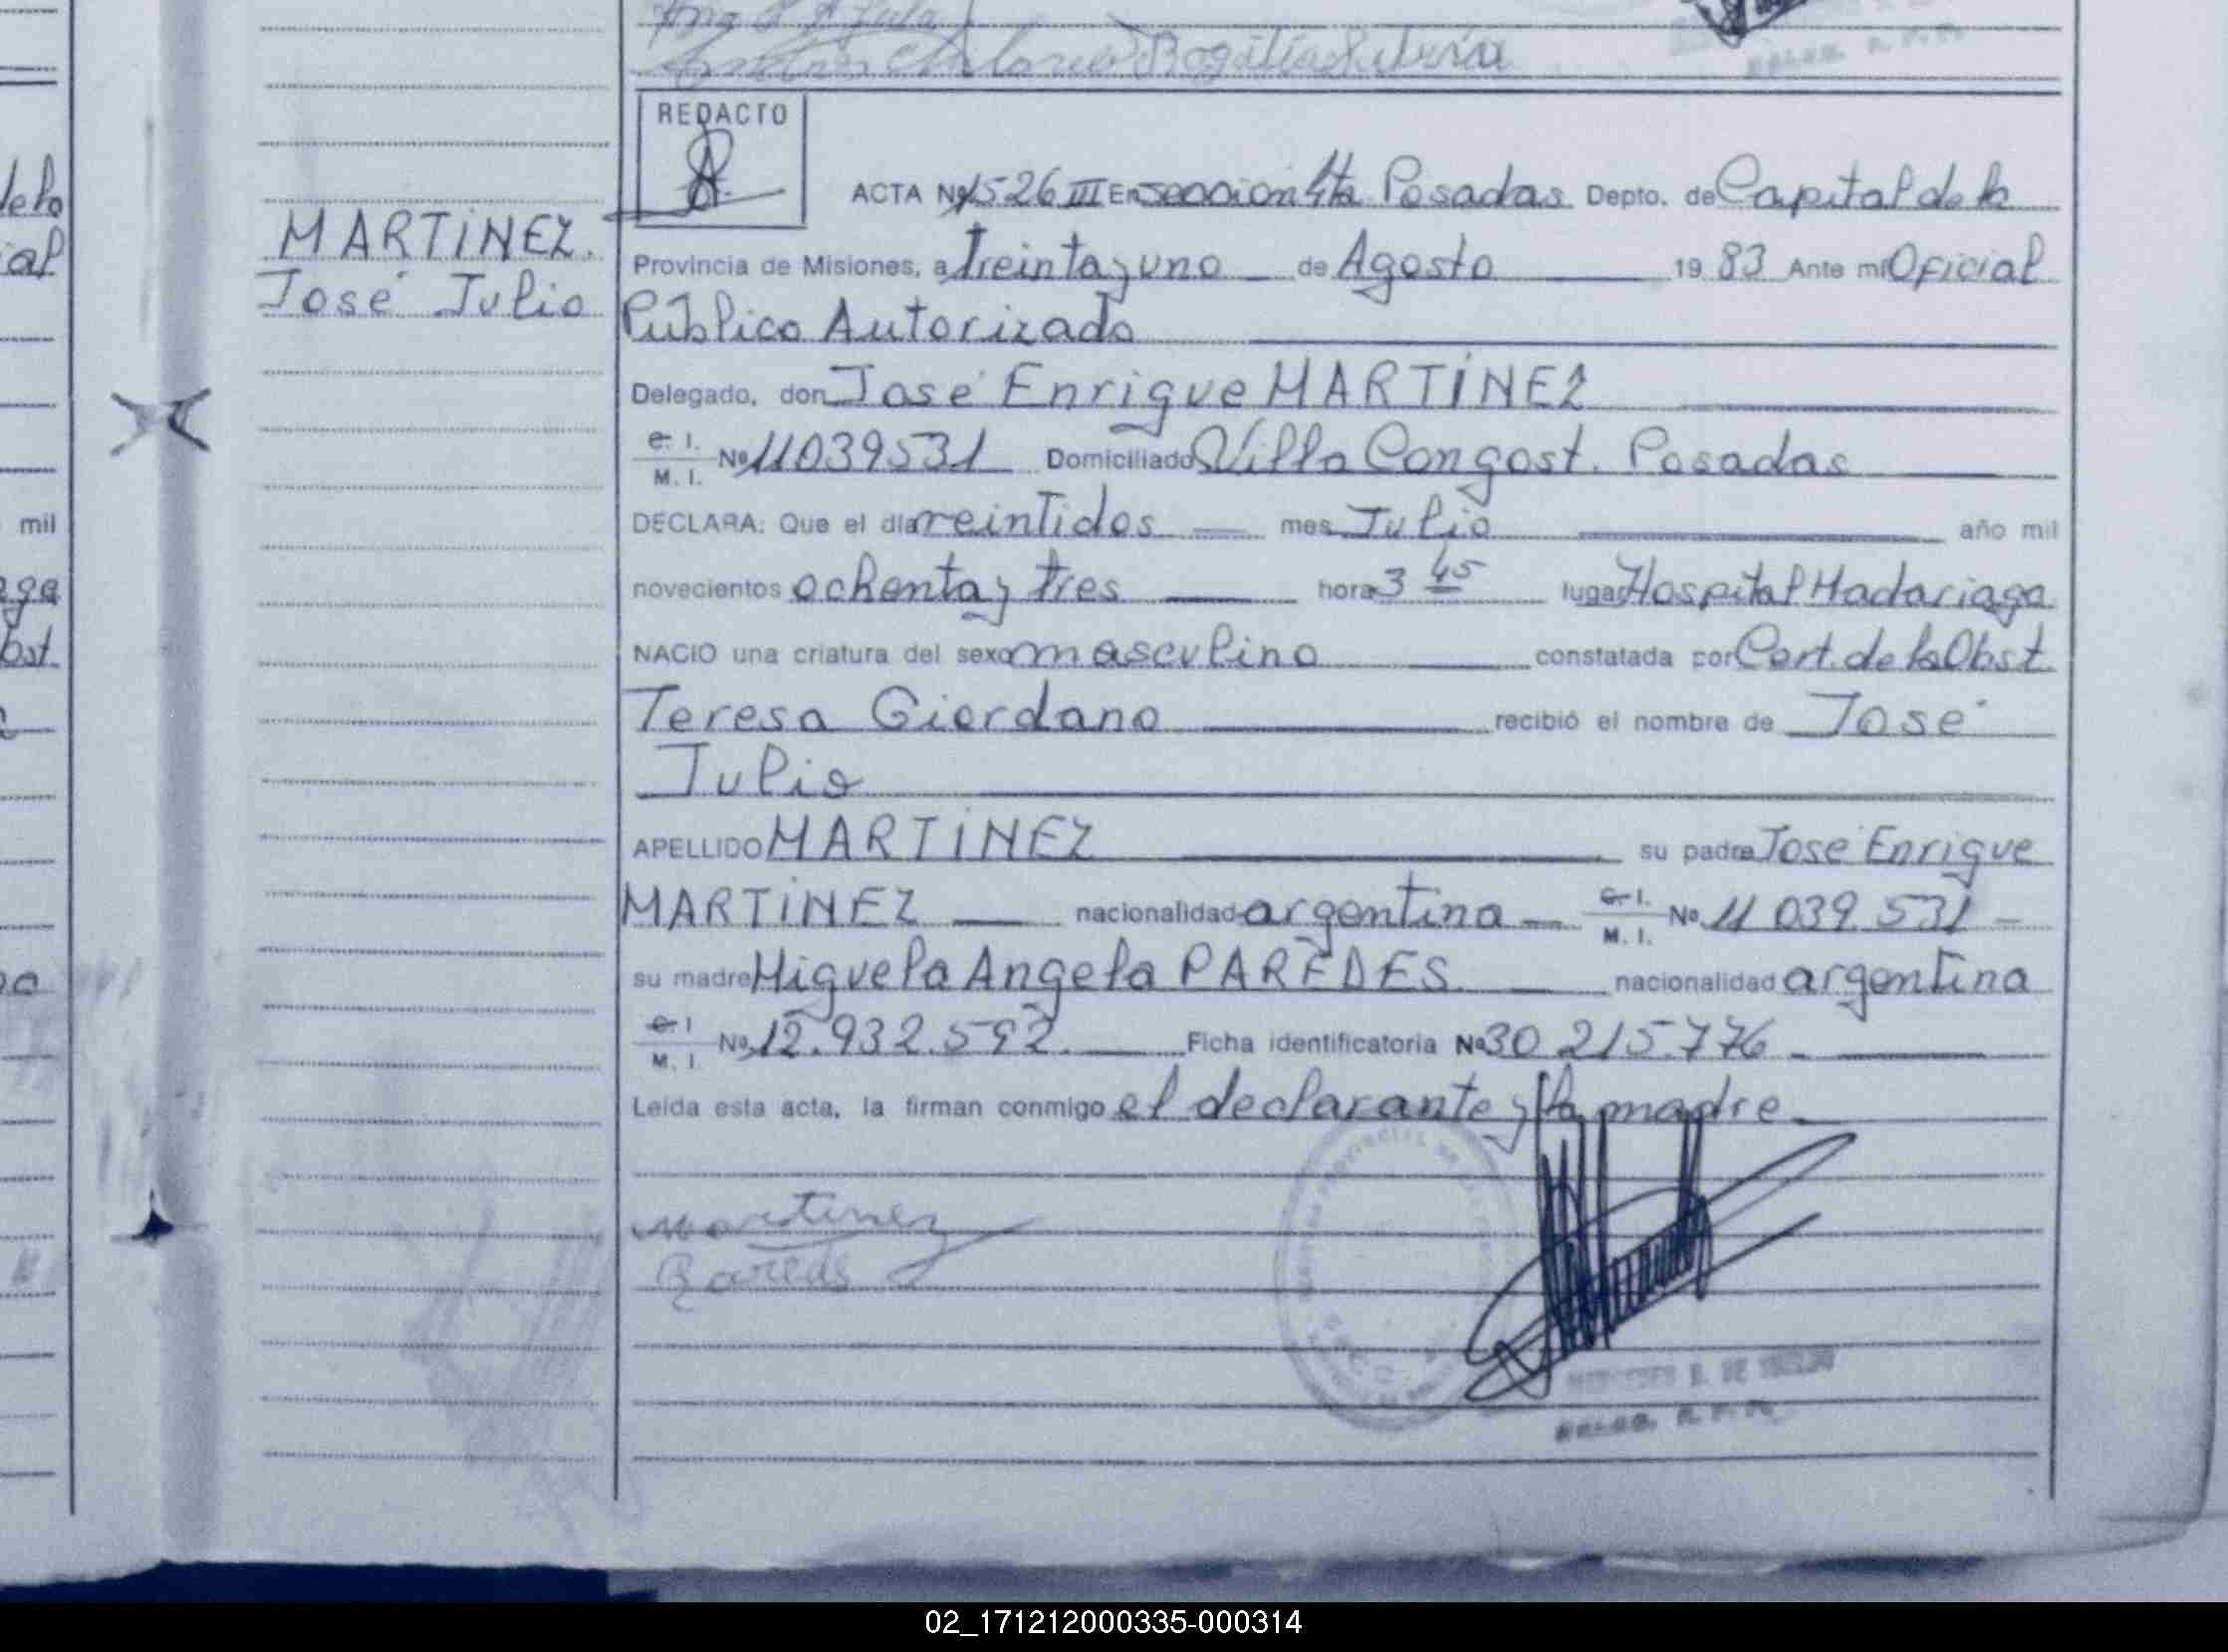 REDACTO
ACTA Nº 1526 III En seccion 4ta Posadas Depto. de Capital de la
MARTINEZ.
José Julio
Provincia de Misiones, a Treinta y uno de Agosto 1983 Ante mí Oficial
Público Autorizado
Delegado, don José Enrique MARTÍNEZ
C. I.
M. I. Nº 11039531 Domiciliado Villa Congost. Posadas
DECLARA: Que el día veintidos mes Julio año mil
novecientos ochenta y tres hora 3 45 lugar Hospital Madariaga
NACIO una criatura del sexo masculino constatada por Cert. de la Obst
Teresa Giordano recibió el nombre de José
Julio
APELLIDO MARTINEZ su padre José Enrique
MARTINEZ nacionalidad argentina C. I. M. I. Nº 11 039.531
su madre Miguela Angela PAREDES nacionalidad argentina
C. I
M. I. Nº 12.932.592. Ficha identificatoria Nº 30 215.776
Leída esta acta, la firman conmigo el declarante y la madre
Martinez
Paredes
mil
02_171212000335-000314